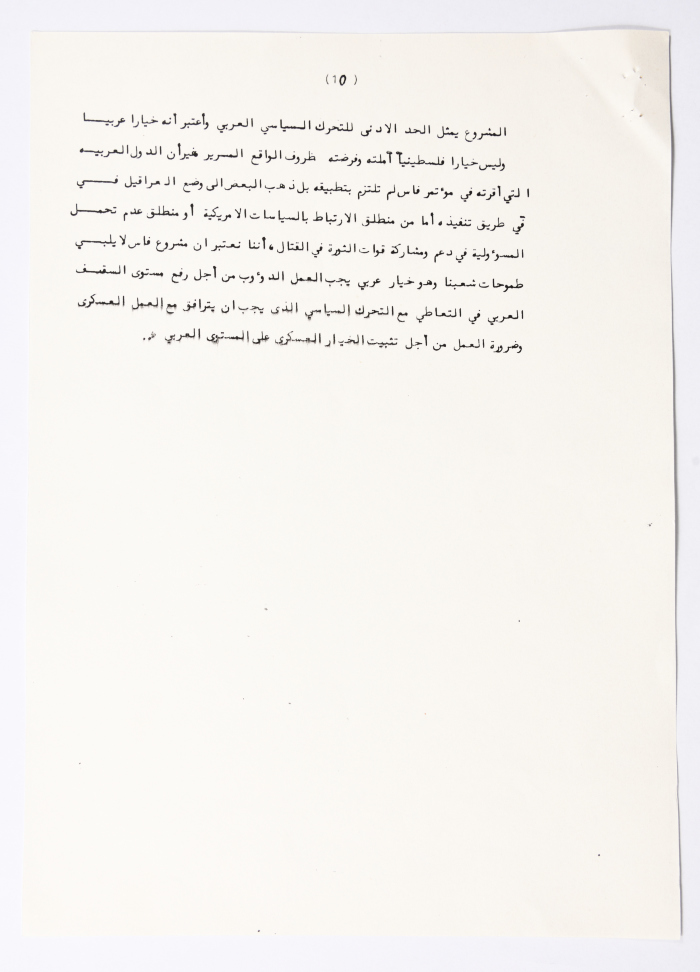 (10)
المشروع يمثل الحد الادنى للتحرك السياسي العربي وأعتبر أنه خيارا عربيـــا
وليس خيارا فلسطينياً أملته وفرضته ظروف الواقع المرير غيرأن الدول العربيه
التي أقرته في مؤتمر فاس لم تلتزم بتطبيقه بل ذهب البعض الى وضع العراقيل فـــي
في طريق تنفيذه أما من منطلق الارتباط بالسياسات الامريكية أو منطلق عدم تحمـــل
المسؤولية في دعم ومشاركة قوات الثورة في القتال ، أننا نعتبر ان مشروع فاس لا يلبـــي
طموحات شعبنا وهو خيار عربي يجب العمل الدؤوب من أجل رفع مستوى السقـــف
العربي في التعاطي مع التحرك السياسي الذى يجب ان يترافق مع العمل العسكرى
وضرورة العمل من أجل تثبيت الخيار العسكرى على المستوى العربي ..